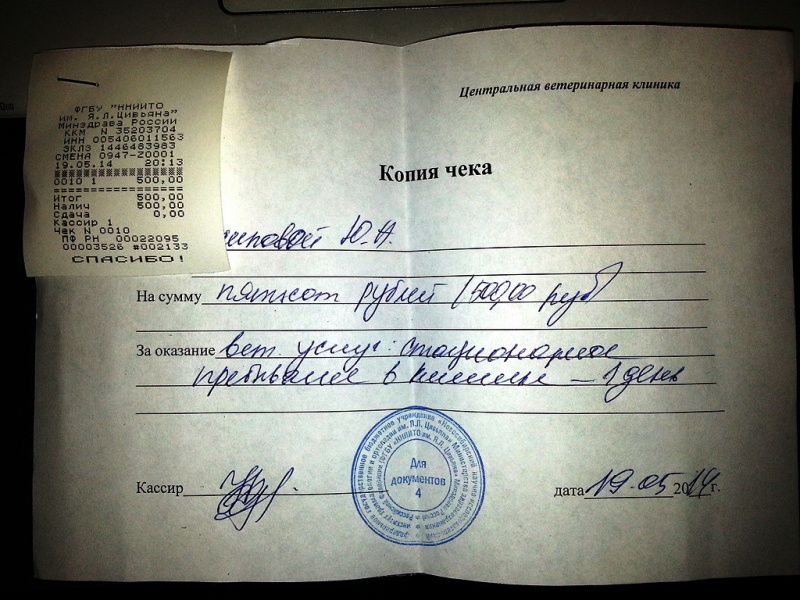 ФГБУ "ННИИТО
им. Я.Л.Цивьяна"
Минздрава России
ККМ N 35203704
ИНН 005406011563
ЭКЛЗ 1446483983
СМЕНА 0947-Z0001
19.05.14 20:13
0010 1 500,00
Итог 500,00
Налич 500,00
Сдача 0,00
Кассир 1
Чек N 0010
ПФ РН 00022095
00003526 #002133
СПАСИБО!
Центральная ветеринарная клиника
Копия чека
Ю.А.
На сумму пятьсот рублей (500,00 руб)
За оказание вет. услуг: стационарное
пребывание в клинике – 1 день
Для
документов
4
Кассир
дата 19.05 2014 г.